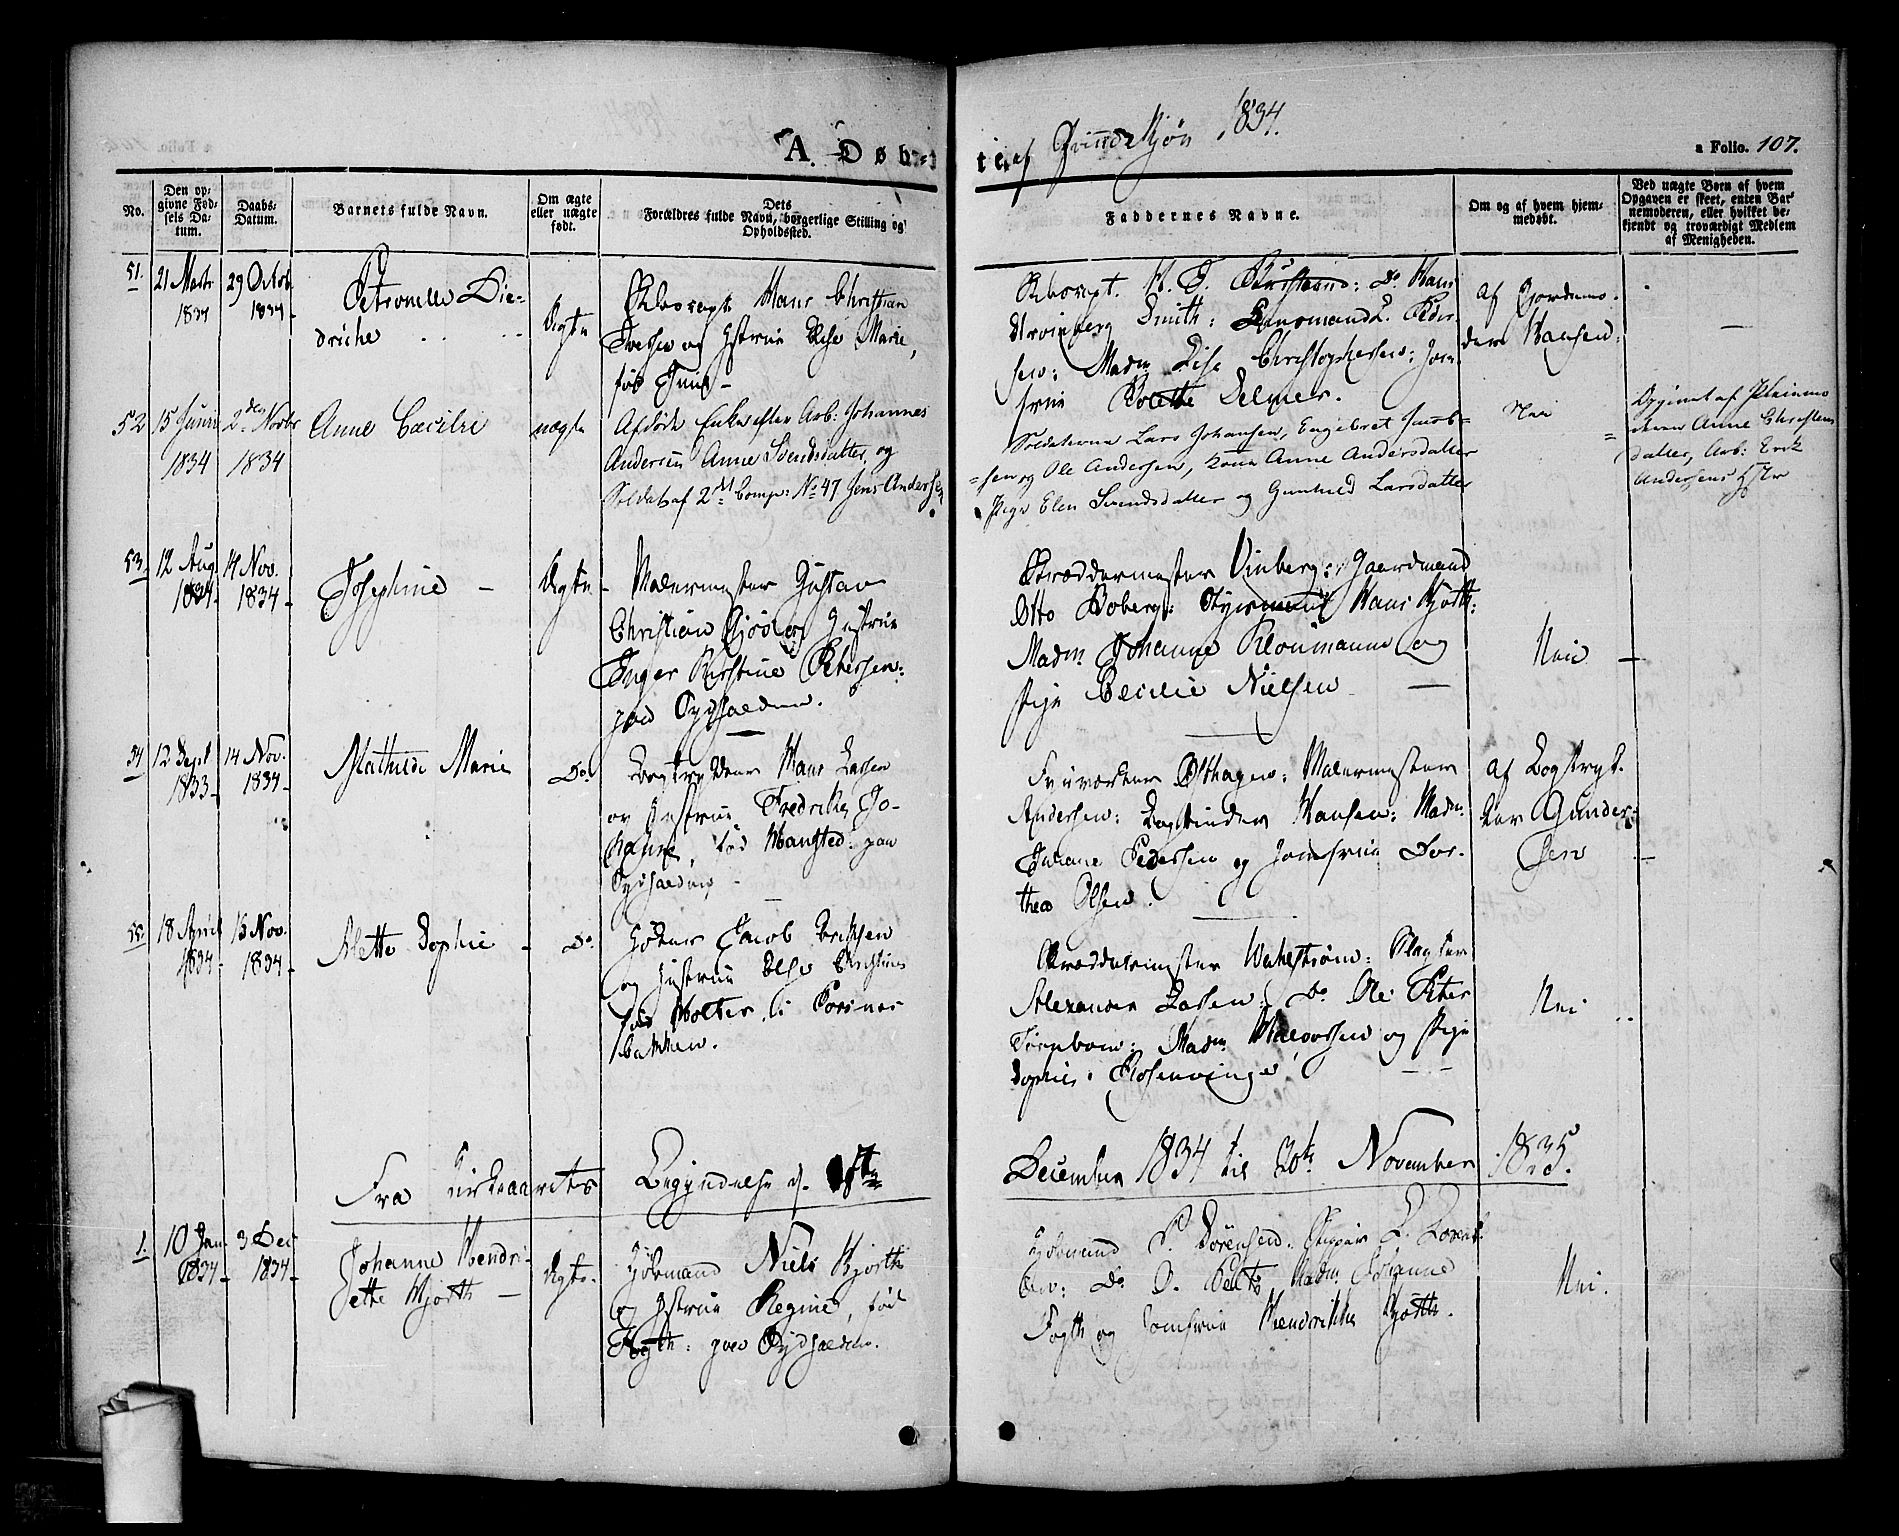 A. Døbte af Qvindekjøn 1834.
a Folio. 107.
No.
Den opgivne Fødsels Datum.
Daabs-Datum.
Barnets fulde Navn.
Om ægte eller uægte født.
Dets Forældres fulde Navn, borgerlige Stilling og Opholdssted.
Faddernes Navne.
Om og af hvem hjemmedøbt.
Ved uægte Børn af hvem Opgaven er skeet, enten Barnemoderen, eller hvilket bekjendt og troværdigt Medlem af Menigheden.
51. 21 Marts 1834 29 Octob. 1834
Petronelle Die-
driche
Ægte
Hans Christian
og Hstrue Else Marie,
født
Hans
Smith: Peder-
sen: Madm Lise Christophersen: Jom-
frue Bolette Delmer.
af Jordemo-
der Hansen
52 15 Juni 1834 2den Novbr 1834
Anne Cæcilie
uægte
Afdøde Enke efter Arb: Johannes
Andersen Anne Svendsdatter, og
Soldat af 2det Comp: No 47 Jens Andersen
Soldaterne Lars Johansen, Engebret Jacob-
sen og Ole Andersen, Kone Anne Andersdatter
Pige Elen Svendsdatter og Gunhild Larsdatter
Nei
Opgivet af Pleiemo
deren Anne Christens
datter, Arb: Erik
Andersens Hstr
53. 12 Aug 1834 14 Nov. 1834
Josephine
Ægte
Malermester Gustav
Christian og Hustrue
Inger Kirstine Petersen:
paa Sydhalden.
Skræddermester Vinberg: Gaardmand
Otto Boberg: Styrmand Hans Hjorth:
Madm Johanne og
Pige Cecilie Nielsen
Nei
54 12 Sept 1833 14 Nov. 1834
Mathilde Marie
Do
Bogtrykker Hans Lassen
og Hustrue Fredrikke Jo-
hanne, født Hansted: paa
Sydhalden
Fyrværker Osthagen: Malermester
Andersen: Bogbinder Hansen: Madm:
Juliane Pedersen og Jomfrue Dor-
thea Olsen.
af Bogtryk-
ker Gunder-
sen
55. 18 April 1834 15 Nov. 1834
Mette Sophie
Do
Jacob Eriksen
og Hustrue Else Christine
født Wolter, i
bakken.
Skræddermester
Alexander Lassen: Do Ole Peter
Tørnbom: Madm og Pige
Sophie Rosenvinge
Nei
Fra Kirkeaarets Begyndelse d. 1ste
December 1834 til 30te November 1835.
1. 10 Jan 1834 3 Dec 1834
Johanne Hendri-
ette Hjorth
Ægte
Niels Hjorth
og Hstrue Regine, født
Fogth: paa Sydhalden.
P. Sørensen: Skipper L. Lorent-
zen: Do Madm Johanne
Fogth og Jomfrue Hendrikke Hjorth.
Nei.